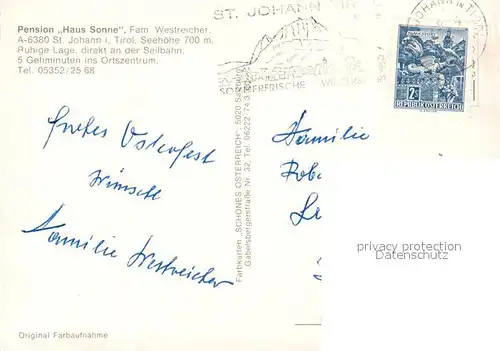 Pension „Haus Sonne", Fam. Westreicher,
A-6380 St. Johann i. Tirol, Seehöhe 700 m,
Ruhige Lage, direkt an der Seilbahn,
5 Gehminuten ins Ortszentrum.
Tel. 05352/25 68
ST. JOHANN
SOMMERFRISCHE
JOHANN in TIROL
2 S
REPUBLIK ÖSTERREICH
Frohes Osterfest
wünscht
Familie Westreicher
Farbkarten „SCHÖNES ÖSTERREICH", 5020 Salzburg
Gabelsbergerstraße Nr. 32, Tel. 06222/74 3
Familie
privacy protection
Datenschutz
Original Farbaufnahme